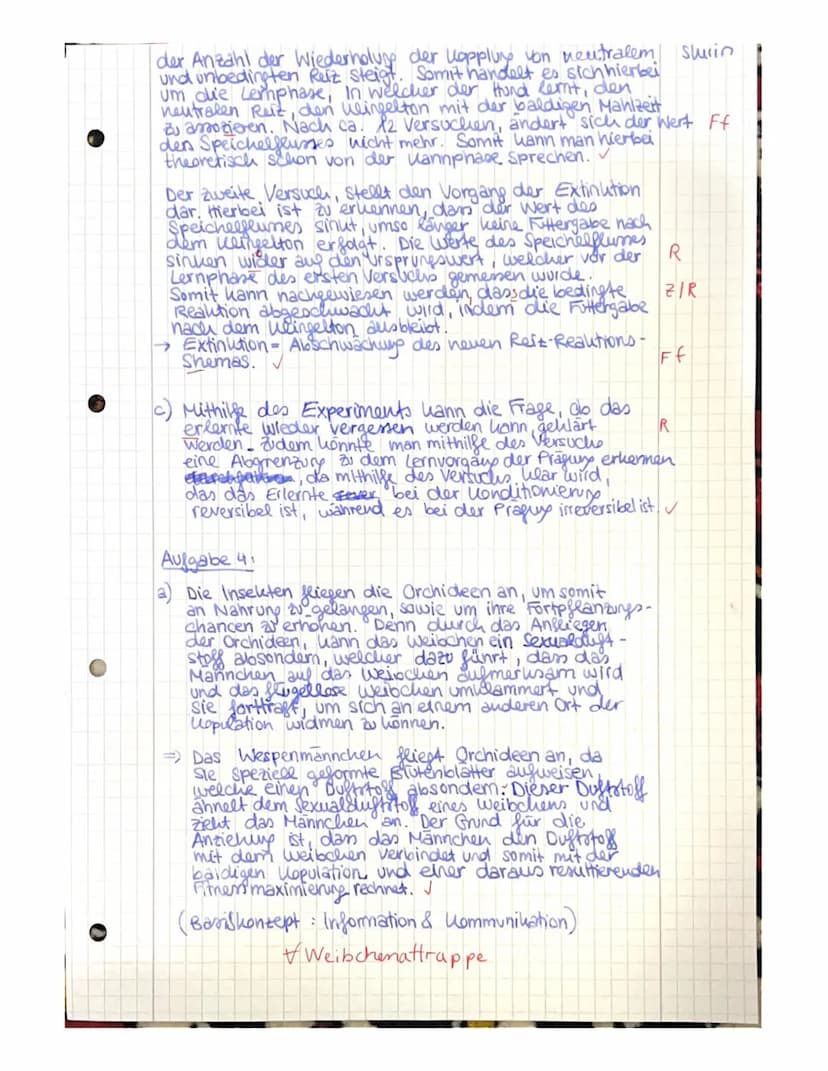 der Anzahl der Wiederholung der Kopplung von neutralem
und unbedingten Reiz steigt. Somit handelt es sich hierbei
um die Lernphase, in welcher der Hund lernt, den
neutralen Reiz, den Klingelton mit der baldigen Mahlzeit
zu assoziieren. Nach ca. 12 Versuchen, ändert sich der Wert Ff
den Speichelflusses nicht mehr. Somit kann man hierbei
theoretisch schon von der Kannphase sprechen. ✓
Der zweite Versuch, stellt den Vorgang der Extinktion
dar. Hierbei ist zu erkennen, dass der Wert des
Speichelflusses sinkt, umso länger keine Futtergabe nach
dem Klingelton erfolgt. Die Werte des Speichelflusses
sinken wider auf den Ursprungswert, welcher vor der R
Lernphase des ersten Versuchs gemessen wurde.
Somit kann nachgewiesen werden, dass die bedingte Z/R
Reaktion abgeschwächt wird, indem die Futtergabe
nach dem Klingelton ausbleibt.
→ Extinktion = Abschwächung des neuen Reiz-Reaktions-
Shemas. ✓ Ff
c) Mithilfe des Experiments kann die Frage, ob das
erlernte wieder vergessen werden kann, geklärt R
werden. Zudem könnte man mithilfe des Versuchs
eine Abgrenzung zu dem Lernvorgang der Prägung erkennen
, da mithilfe des Versuchs klar wird,
das das Erlernte bei der Konditionierung
reversibel ist, während es bei der Prägung irreversibel ist. ✓
Aufgabe 4:
a) Die Insekten fliegen die Orchideen an, um somit
an Nahrung zu gelangen, sowie um ihre Fortpflanzungs-
chancen zu erhöhen. Denn durch das Anfliegen
der Orchideen, kann das Weibchen ein Sexualduft-
stoff absondern, welcher dazu führt, dass das
Männchen auf das Weibchen aufmerksam wird
und das flügellose Weibchen umklammert und
sie fortträgt, um sich an einem anderen Ort der
Kopulation widmen zu können.
⇒ Das Wespenmännchen fliegt Orchideen an, da
sie speziell geformte Blütenblätter aufweisen,
welche einen Duftstoff absondern. Dieser Duftstoff
ähnelt dem Sexualduftstoff eines Weibchens und
zieht das Männchen an. Der Grund für die
Anziehung ist, dass das Männchen den Duftstoff
mit dem Weibchen verbindet und somit mit der
baldigen Kopulation und einer daraus resultierenden
Fitnessmaximierung rechnet. ✓
(Basiskonzept: Information & Kommunikation)
∀ Weibchenattrappe